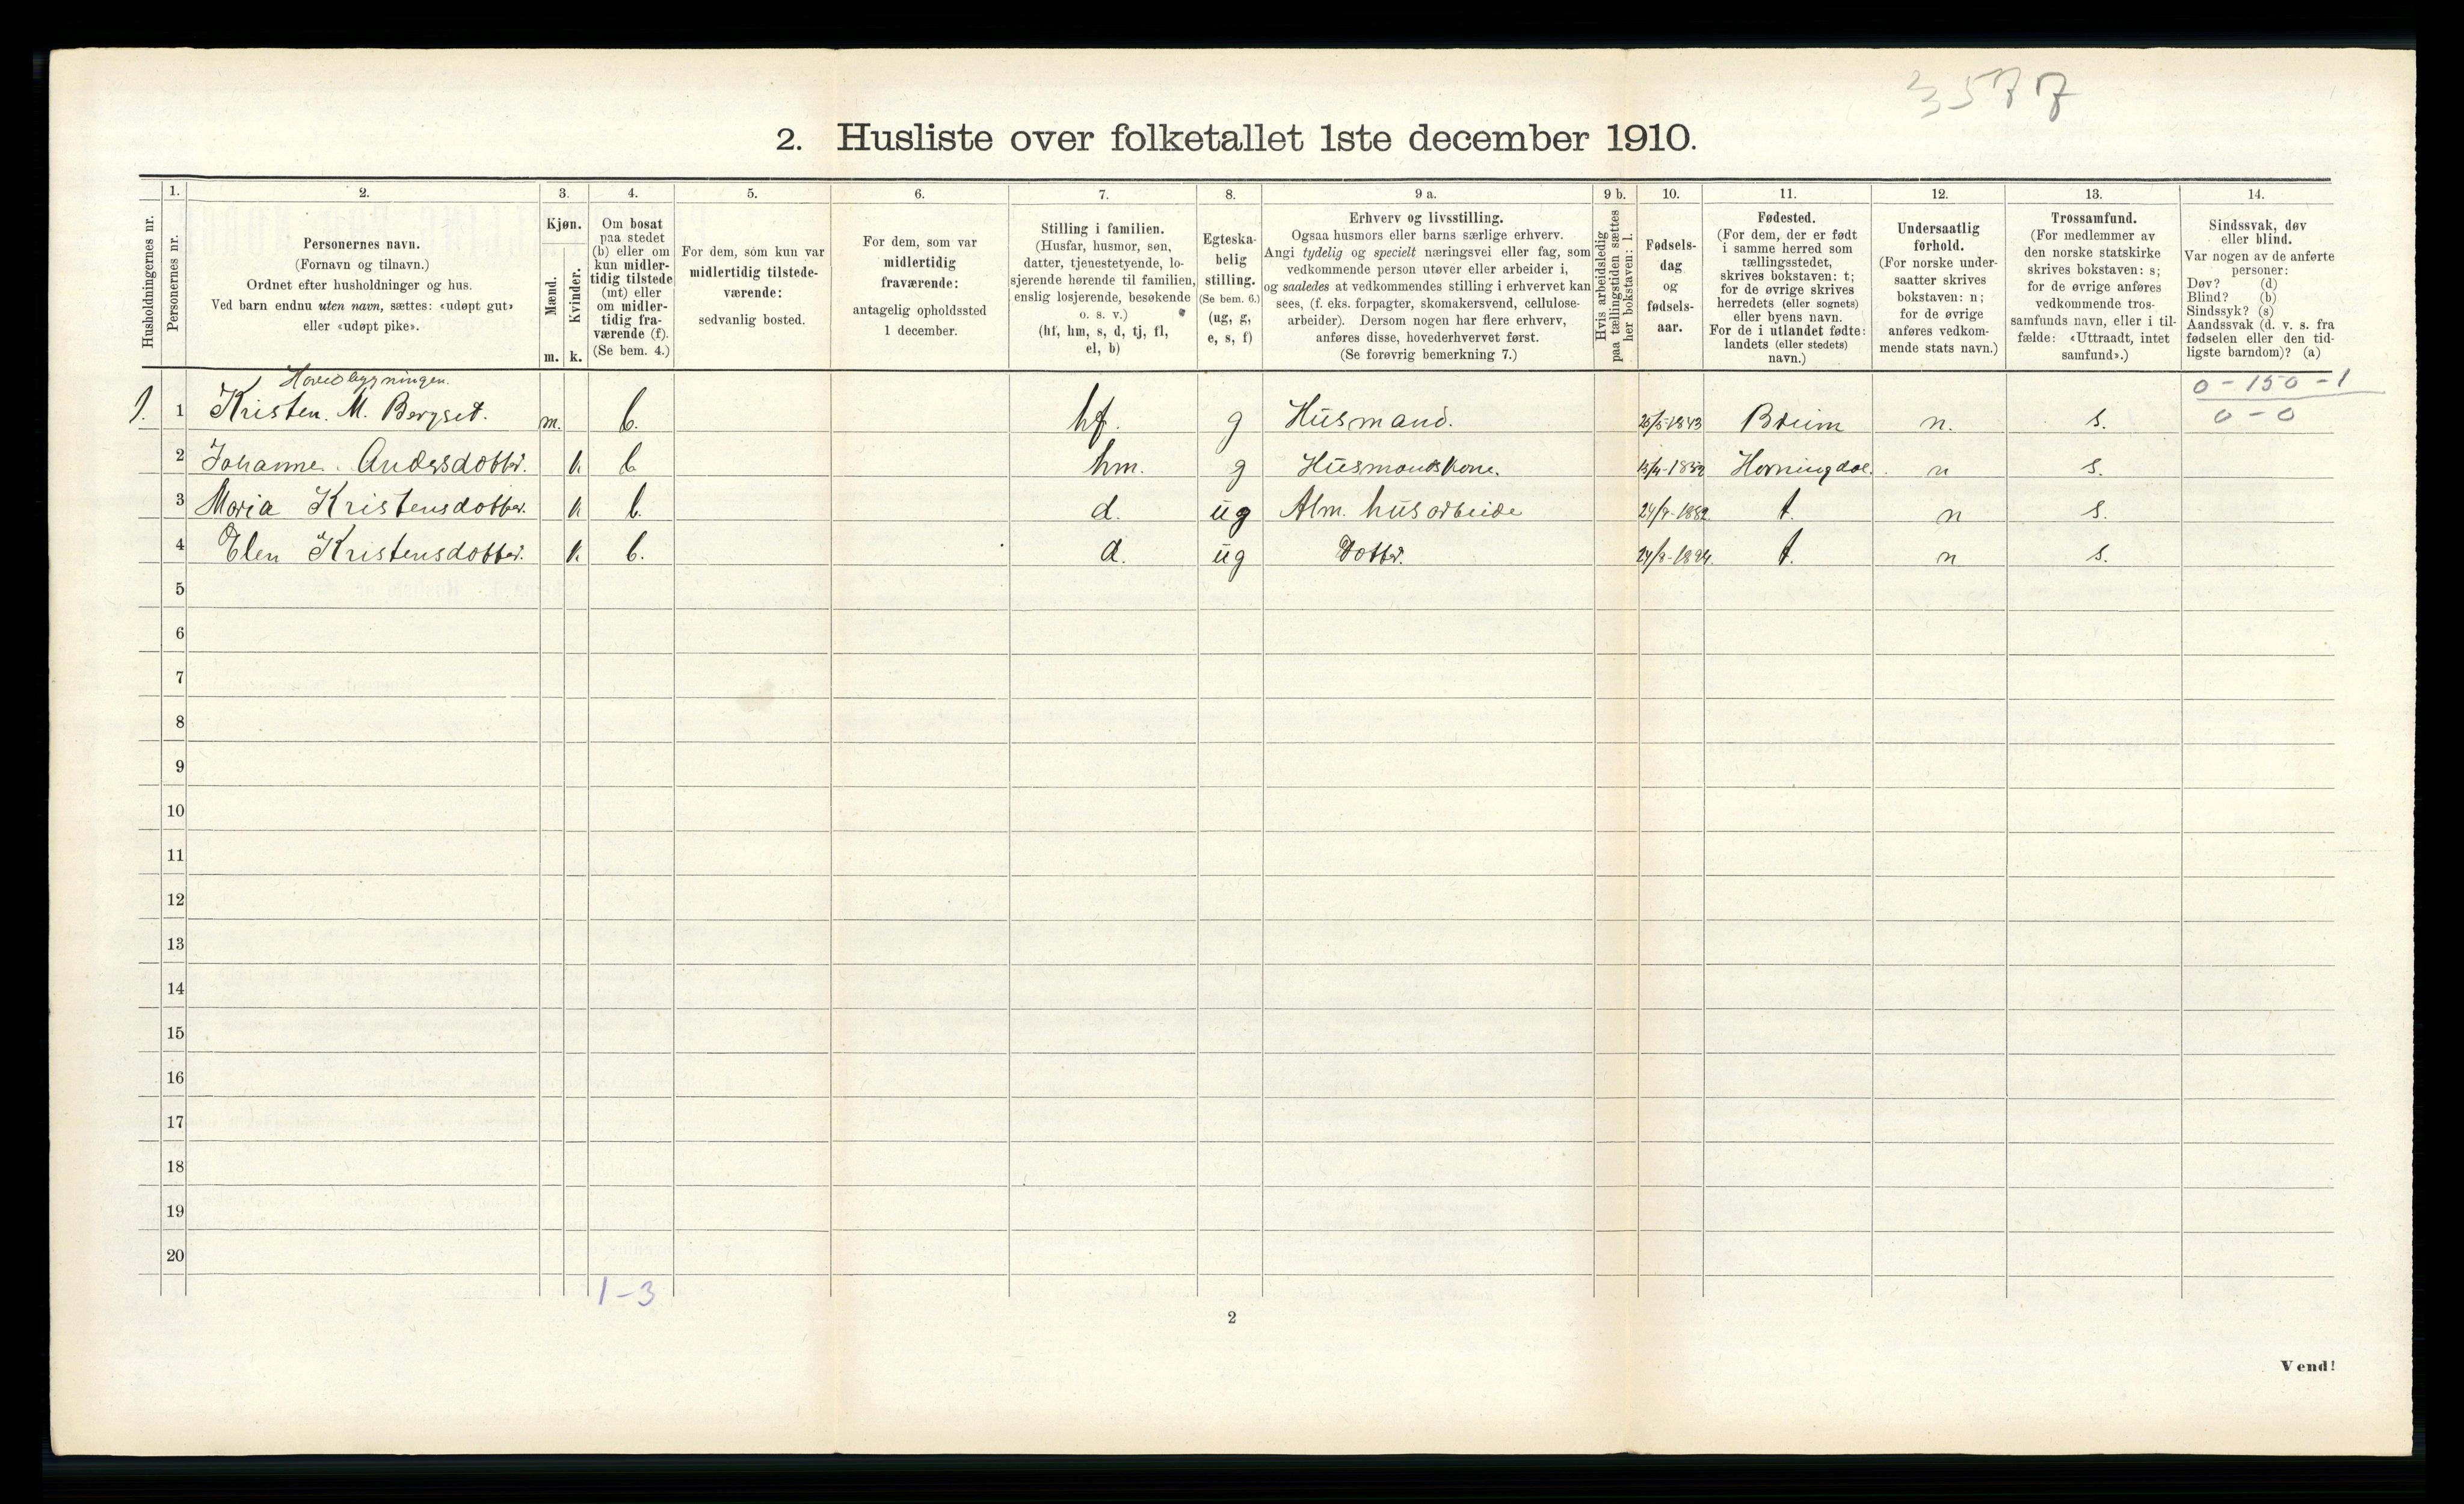 3577
2. Husliste over folketallet 1ste december 1910.
Husholdningernes nr.
1.
Personernes nr.
2.
Personernes navn.
(Fornavn og tilnavn.)
Ordnet efter husholdninger og hus.
Ved barn endnu uten navn, sættes: «udøpt gut»
eller «udøpt pike».
3.
Kjøn.
Mænd.
Kvinder.
m. k.
4.
Om bosat
paa stedet
(b) eller om
kun midler-
tidig tilstede
(mt) eller
om midler-
tidig fra-
værende (f).
(Se bem. 4.)
5.
For dem, som kun var
midlertidig tilstede-
værende:
sedvanlig bosted.
6.
For dem, som var
midlertidig
fraværende:
antagelig opholdssted
1 december.
7.
Stilling i familien.
(Husfar, husmor, søn,
datter, tjenestetyende, lo-
sjerende hørende til familien,
enslig losjerende, besøkende
o. s. v.)
(hf, hm, s, d, tj, fl,
el, b)
8.
Egteska-
belig
stilling.
(Se bem. 6.)
(ug, g,
e, s, f)
9 a.
Erhverv og livsstilling.
Ogsaa husmors eller barns særlige erhverv.
Angi tydelig og specielt næringsvei eller fag, som
vedkommende person utøver eller arbeider i,
og saaledes at vedkommendes stilling i erhvervet kan
sees, (f. eks. forpagter, skomakersvend, cellulose-
arbeider). Dersom nogen har flere erhverv,
anføres disse, hovederhvervet først.
(Se forøvrig bemerkning 7.)
9 b.
Hvis arbeidsledig
paa tællingstiden sættes
her bokstaven: l.
10.
Fødsels-
dag
og
fødsels-
aar.
11.
Fødested.
(For dem, der er født
i samme herred som
tællingsstedet,
skrives bokstaven: t;
for de øvrige skrives
herredets (eller sognets)
eller byens navn.
For de i utlandet fødte:
landets (eller stedets)
navn.)
12.
Undersaatlig
forhold.
(For norske under-
saatter skrives
bokstaven: n;
for de øvrige
anføres vedkom-
mende stats navn.)
13.
Trossamfund.
(For medlemmer av
den norske statskirke
skrives bokstaven: s;
for de øvrige anføres
vedkommende tros-
samfunds navn, eller i til-
fælde: «Uttraadt, intet
samfund».)
14.
Sindssvak, døv
eller blind.
Var nogen av de anførte
personer:
Døv? (d)
Blind? (b)
Sindssyk? (s)
Aandssvak (d. v. s. fra
fødselen eller den tid-
ligste barndom)? (a)
Hovedbygningen.
0-150-1
0-0
1. 1 Kristen. M. Bergset. m. b. hf. g Husmand. 25/5-1843 Breim n. s.
2 Johanne. Andersdotter. k b hm. g Husmandskone. Horningdal. n s.
3 Maria Kristensdotter. k b. d. ug Alm. husarbeide t. n s.
4 Elen Kristensdotter. k b. d. ug Dotter. t. n s.
5
6
7
8
9
10
11
12
13
14
15
16
17
18
19
20
1-3
2
Vend!